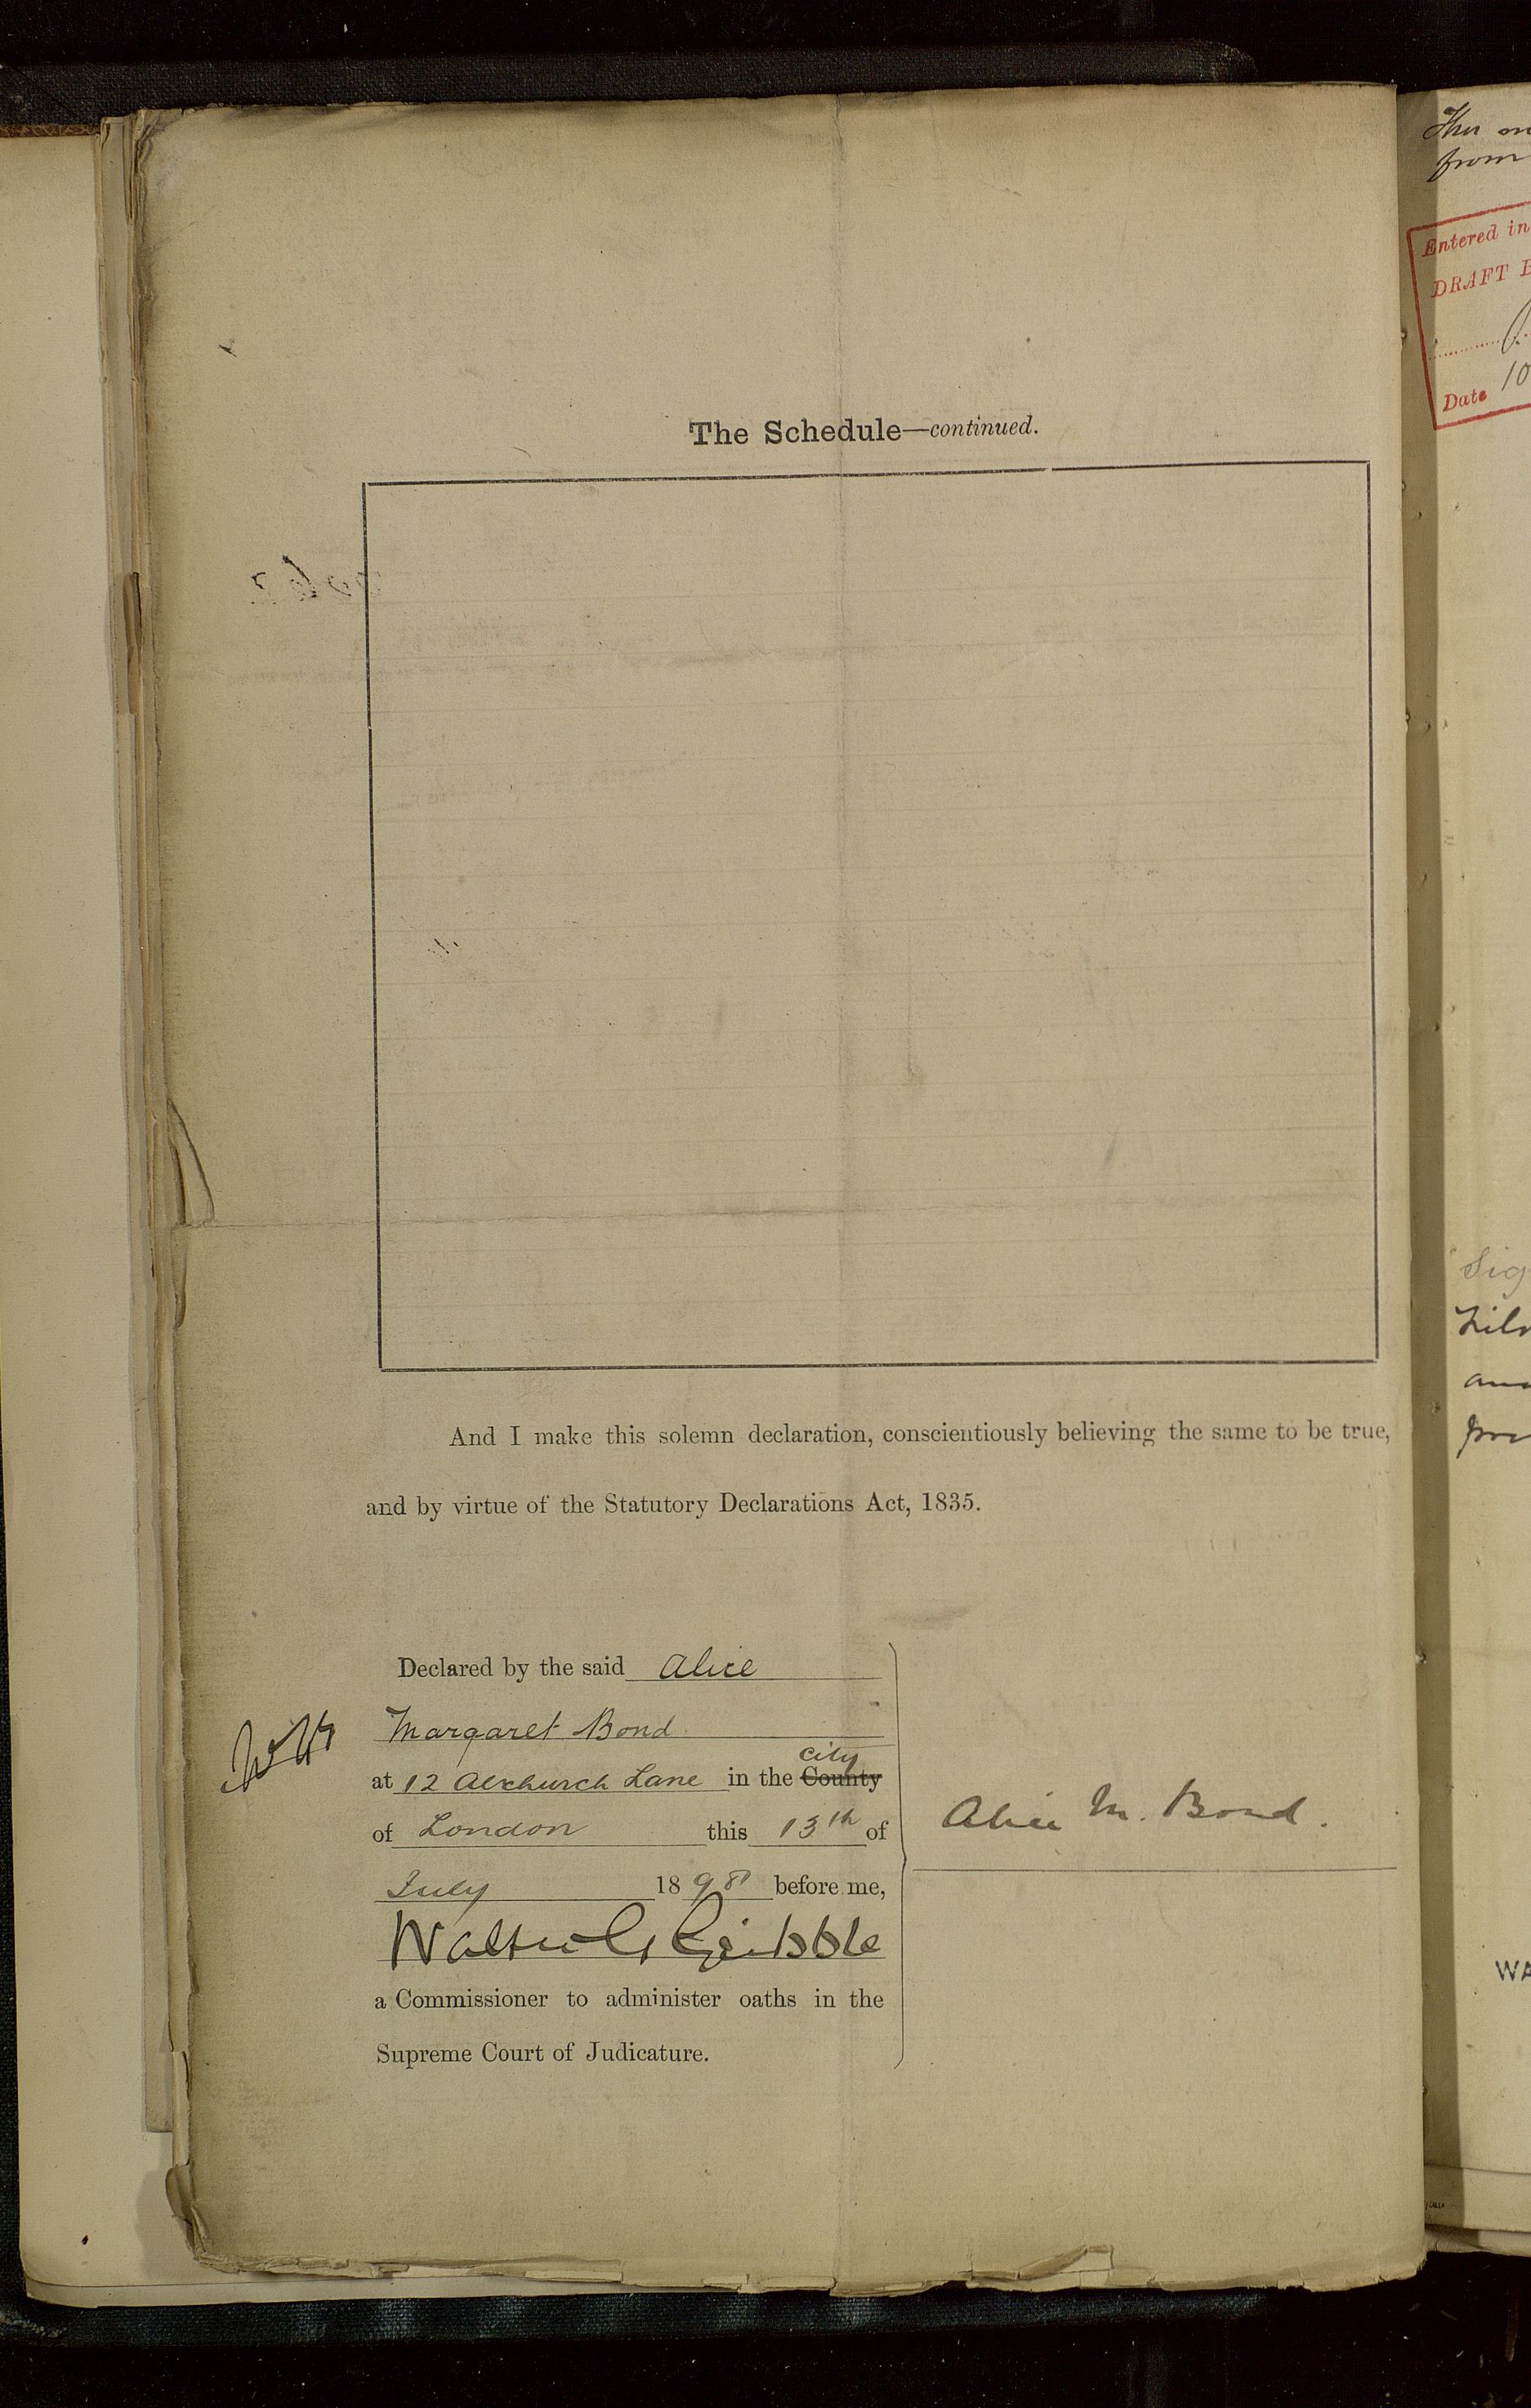 The Schedule—continued.
And I make this solemn declaration, conscientiously believing the same to be true,
and by virtue of the Statutory Declarations Act, 1835.
Declared by the said Alice
Margaret Bond
at 12 Abchurch Lane in the County city
of London this 13th of
July 1898 before me,
Walter G Gribble
a Commissioner to administer oaths in the
Supreme Court of Judicature.
Alice M. Bond.
from
Entered in
DRAFT
Date 10
Sig
WA